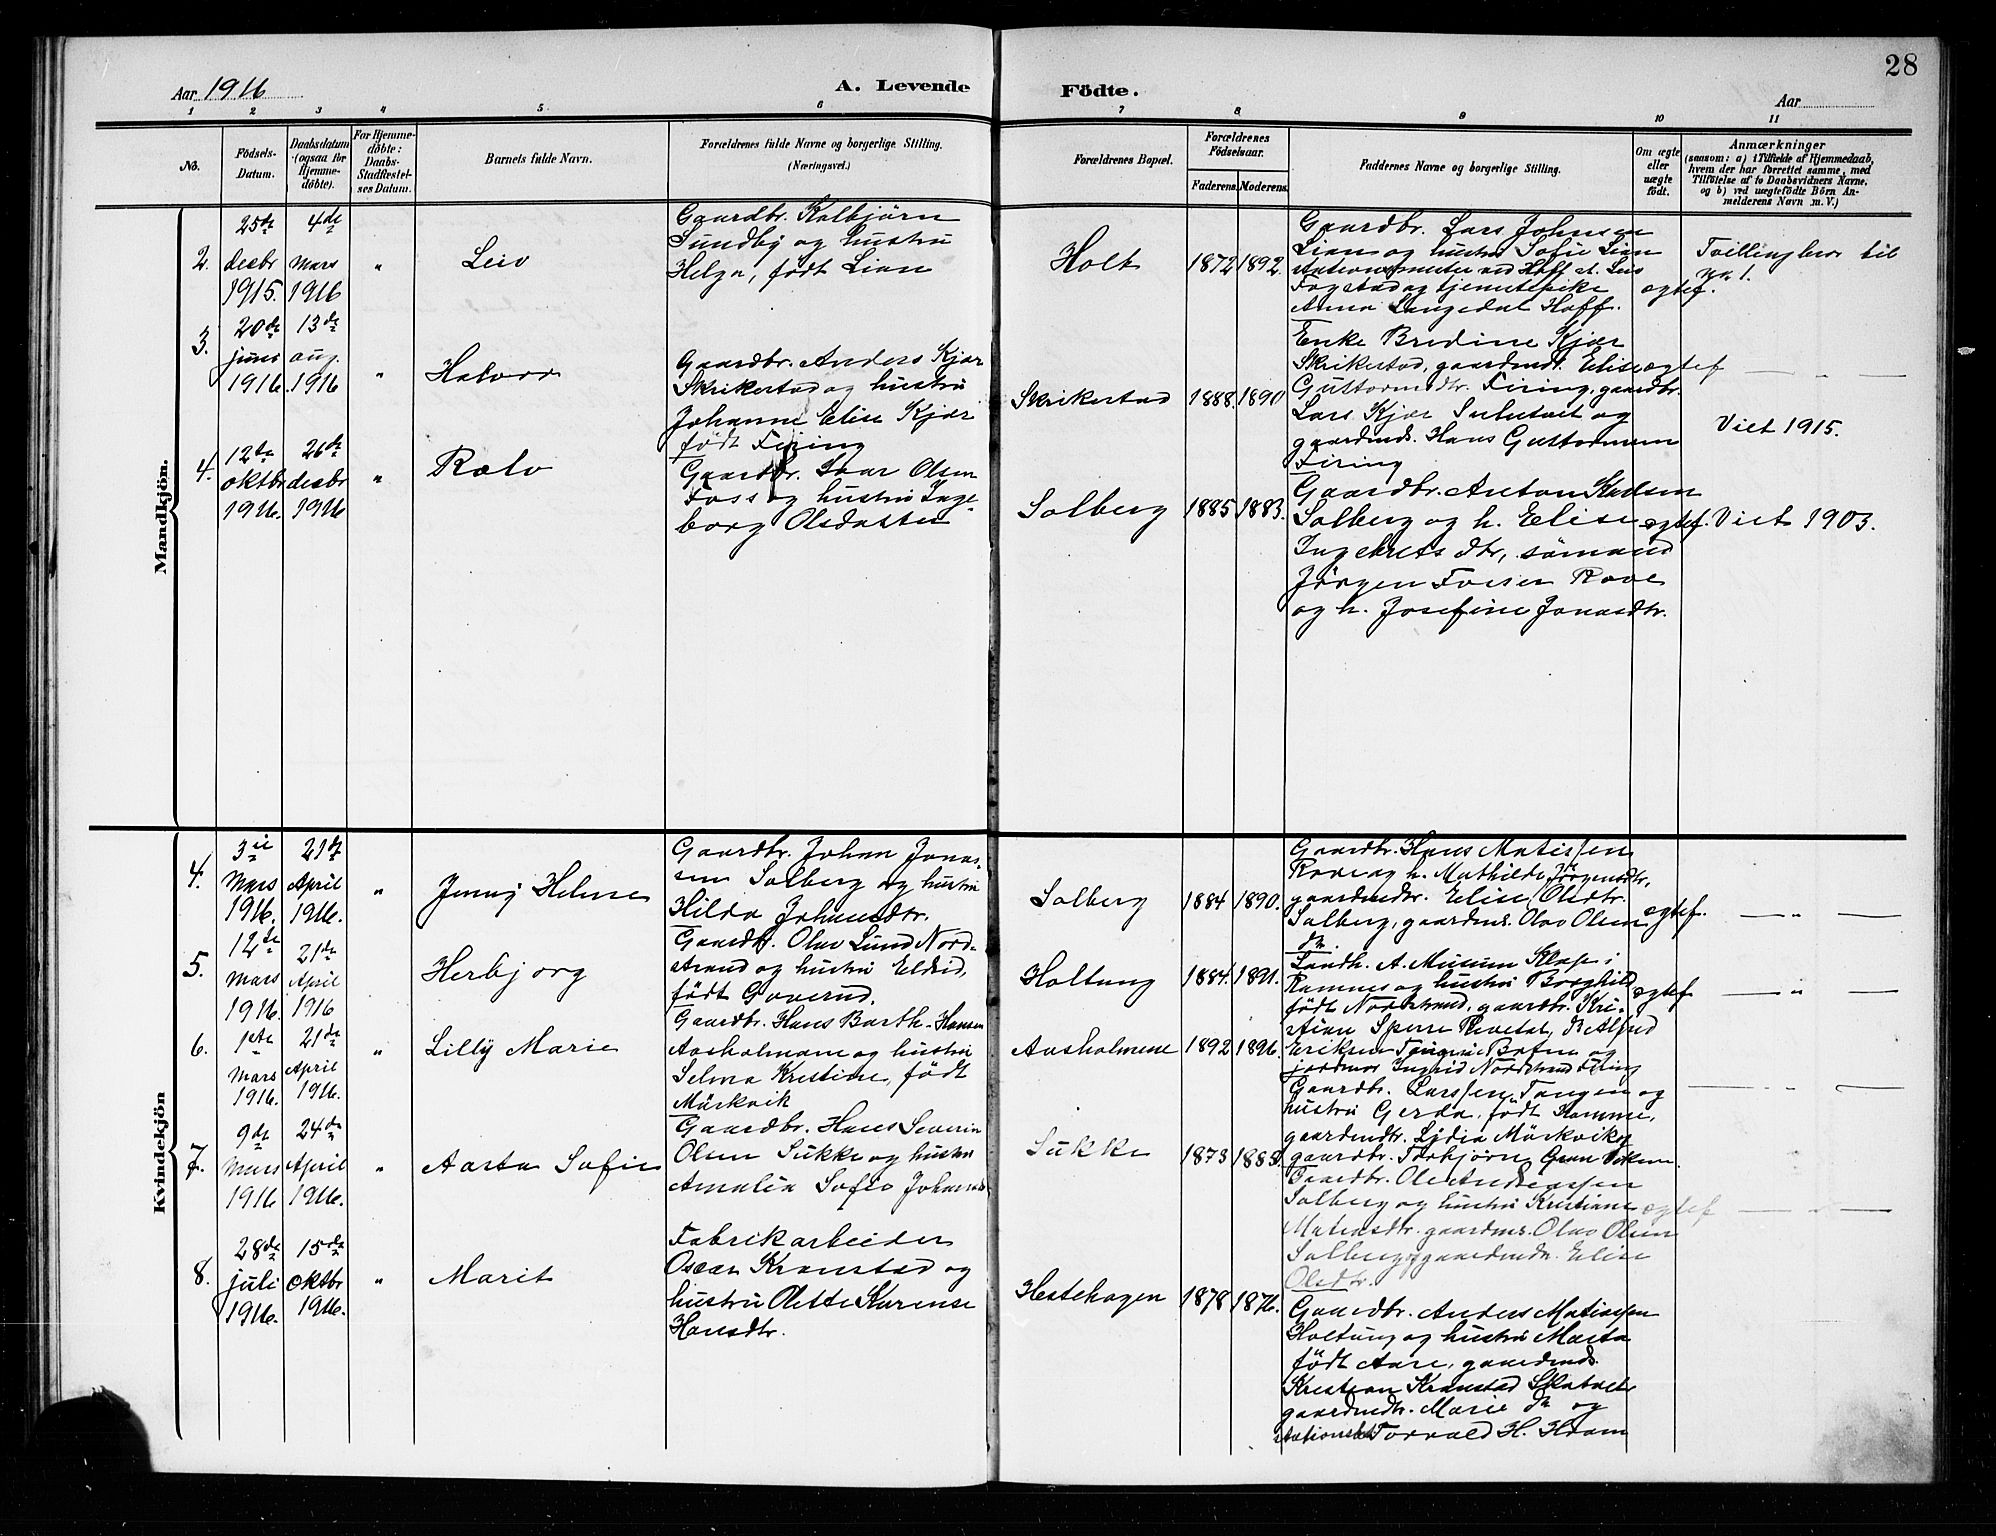 28
Aar 1916
A. Levende
Födte.
Aar
1 2 3 4 5 6 7 8 9 10 11
No.
Födsels-
Datum.
Daabsdatum
(ogsaa for
Hjemme-
döbte).
For Hjemme-
döbte:
Daabs-
Stadfæstel-
ses Datum.
Barnets fulde Navn.
Forældrenes fulde Navne og borgerlige Stilling.
(Næringsvei.)
Forældrenes Bopæl.
Forældrenes
Födselsaar.
Faderens.
Moderens.
Faddernes Navne og borgerlige Stilling.
Om ægte
eller
uægte
födt.
Anmærkninger
(saasom: a) i Tilfælde af Hjemmedaab,
hvem der har forrettet samme, med
Tilföielse af to Daabsvidners Navne,
og b) ved uægtefödte Börn An-
melderens Navn m. V.)
Mandkjön.
2.
25de
decbr
1915.
4de
Mars
1916
"
Leiv
Gaardbr. Kolbjörn
Sundby og hustru
Helga, født Lian
Holt
1872
1892.
Gaardbr. Lars Johnsen
Lian og hustru Sofie Lian
stationsmester ved Hoff st. Leis
Fogstad og tjenestepike
Anna Langedal Hoff.
egtef.
Tvillingbror til
nr. 1.
3.
20de
juni
1916.
13de
aug.
1916
"
Halvor
Gaardbr. Anders Kjær
Skrikestad og hustru
Johanne Elise Kjær
født Firing
Skrikestad
1888.
1890
Enke Bredine Kjær
Skrikestad, gaardmdt. Elise
Guttormsdtr. Firing, gaardbr.
Lars Kjær Sulutvet og
gaardmds. Hans Guttormsen
Firing
egtef
— " —
Viet 1915.
4.
12te
oktbr
1916.
26de
decbr
1916
"
Ralv
Gaardbr. Ivar Olsen
Foss og hustru Inge-
borg Olsdatter
Solberg
1885
1883.
Gaardbr. Anton Karlsen
Solberg og h. Elise
Ingebrets dtr, sömand
Jörgen Foisen Rove
og h. Josefine Jonasdtr.
egtef.
Viet 1903.
Kvindekjön
4.
3ie
Mars
1916.
21de
April
1916.
"
Jenny Helene
Gaardbr. Johan Jonas-
sen Solberg og hustru
Hilda Johansdtr.
Solberg
1884
1890.
Gaardbr. Hans Matissen
Rove og h. Mathilde Jörgensdtr,
gaardmdtr. Elise Olsdtr.
Solberg, gaardms. Olav Olsen
do.
egtef.
— " —
5.
12te
Mars
1916.
21de
April
1916
Herbjorg
Gaardbr. Olav Lund Nord-
strand og hustru Eldrid,
født Goverud.
Holtung
1884.
1891.
Landh. A. Musum Klop i
Ramnes og hustru Borghild
født Nordstrand, gaardbr. Kri-
stian Sperre Revetal, Alfred
Eriksen
Ingrid Nordstrand Firing
egtef
— " —
6.
1ste
Mars
1916.
21de
April
1916.
"
Lilly Marie
Gaardbr. Hans Barth-Hansen
Aasholmene og hustru
Selma Kristine, født
Mörkvik
Aasholmene
1892
1896.
Gaardbr. Lars Jen. Tangen og
hustru Gerda, født Hamme,
gaardmdtr. Lydia Mörkvik og
gaardbr. Torbjörn Gran
— " —
7.
9de
Mars
1916
24de
April
1916.
"
Aasta Sofie
Gaardbr. Hans Severin
Olsen Sukke og hustru
Amalia Sofie Johansd.
Sukke
1873
1883.
Gaardbr. Ole Andreassen
Solberg og hustru Kristiane
Matiasdtr. gaardms. Olav Olsen
Solberg og gaardmdtr. Elise
Olsdtr.
egtef
— " —
8.
28de
juli
1916.
15de
oktbr
1916.
"
Marit
Fabrikarbeider
Oscar Kranstad og
hustru Olette Karense
Hansdtr.
Hestehagen
1878
1876.
Gaardbr. Anders Matiassen
Holtung og hustru Marta
født Aare, gaardmds.
Kristian Kranstad Skatvet
gaardmdtr. Marie do og
Torvald H. Hvam